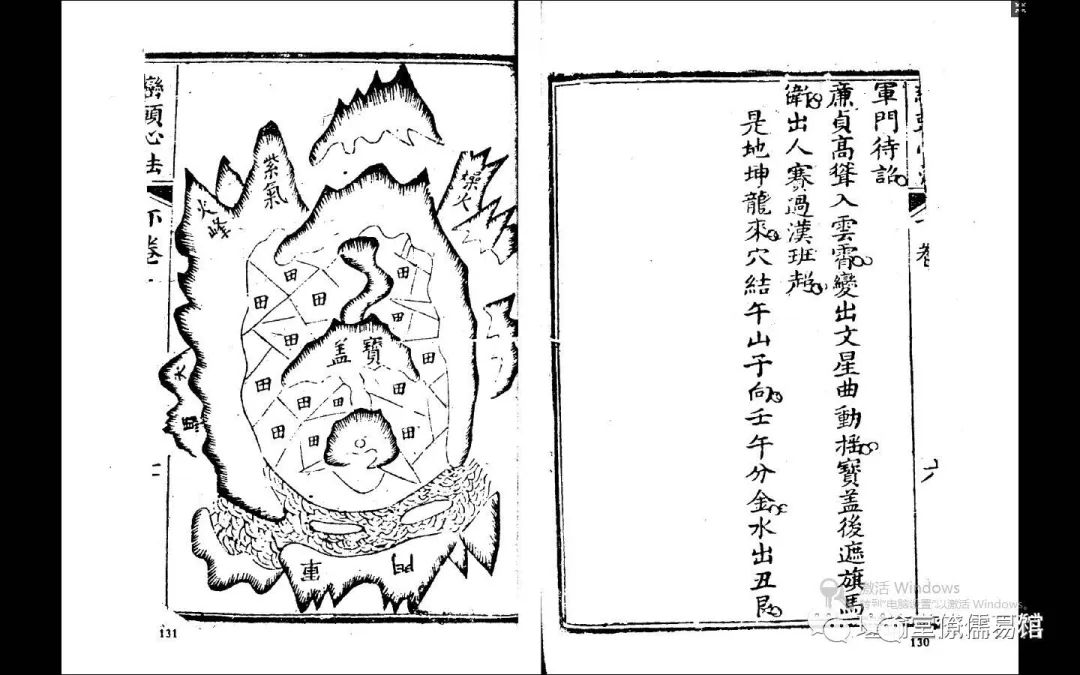 軍門待詔
廉貞高聳入雲霄變出文星曲動搖寶盖後遮旗馬
衛出人賽過漢班超
是地坤龍來穴結午山子向壬午分金水出丑艮
130
巒頭心法
下卷
紫氣
火峰
燥火
寶盖
田
田
田
田
田
田
田
田
田
田
田
田
田
田
軍門
131
激活 Windows
转到"电脑设置"以激活 Windows。